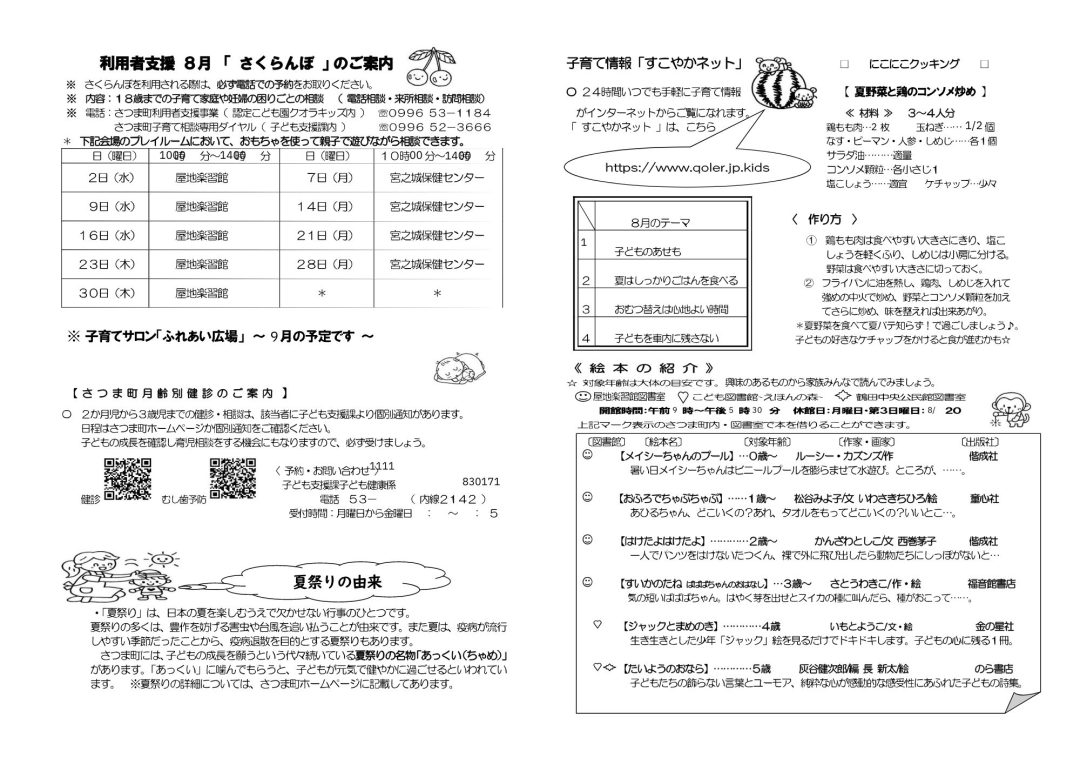 利用者支援 8月 「 さくらんぼ 」のご案内
※ さくらんぼを利用される際は、必ず電話での予約をお取りください。
※ 内容：18歳までの子育て家庭や妊婦の困りごとの相談 （ 電話相談・来所相談・訪問相談）
※ 電話：さつま町利用者支援事業（ 認定こども園クオラキッズ内 ） ☏0996 53−1184
さつま町子育て相談専用ダイヤル（ 子ども支援課内 ） ☏0996 52−3666
＊ 下記会場のプレイルームにおいて、おもちゃを使って親子で遊びながら相談できます。
日（曜日） 10時00 分〜14時00 分 日（曜日） 10時00分〜14時00 分
2日（水） 屋地楽習館 7日（月） 宮之城保健センター
9日（水） 屋地楽習館 14日（月） 宮之城保健センター
16日（水） 屋地楽習館 21日（月） 宮之城保健センター
23日（木） 屋地楽習館 28日（月） 宮之城保健センター
30日（木） 屋地楽習館 ＊ ＊
※ 子育てサロン「ふれあい広場」 〜 9月の予定です 〜
【 さつま町月齢別健診のご案内 】
〇 2か月児から3歳児までの健診・相談は、該当者に子ども支援課より個別通知があります。
日程はさつま町ホームページか個別通知をご確認ください。
子どもの成長を確認し育児相談をする機会にもなりますので、必ず受けましょう。
健診 むし歯予防
〈 予約・お問い合わせ 1111
子ども支援課子ども健康係 830171
電話 53− （ 内線2142 ）
受付時間：月曜日から金曜日 ： 〜 ： 5
夏祭りの由来
・「夏祭り」は、日本の夏を楽しむうえで欠かせない行事のひとつです。
夏祭りの多くは、豊作を妨げる害虫や台風を追い払うことが由来です。また夏は、疫病が流行
しやすい季節だったことから、疫病退散を目的とする夏祭りもあります。
さつま町には、子どもの成長を願うという代々続いている夏祭りの名物「あっくい（ちゃめ）」
があります。「あっくい」に噛んでもらうと、子どもが元気で健やかに過ごせるといわれてい
ます。 ※夏祭りの詳細については、さつま町ホームページに記載してあります。
子育て情報「すこやかネット」
〇 24時間いつでも手軽に子育て情報
がインターネットからご覧になれます。
「 すこやかネット 」は、こちら
https://www.qoler.jp.kids
8月のテーマ
1 子どものあせも
2 夏はしっかりごはんを食べる
3 おむつ替えは心地よい時間
4 子どもを車内に残さない
□ にこにこクッキング □
【 夏野菜と鶏のコンソメ炒め 】
≪ 材料 ≫ 3〜4人分
鶏もも肉…2 枚 玉ねぎ…… 1/2個
なす・ピーマン・人参・しめじ……各1個
サラダ油………適量
コンソメ顆粒…各小さじ1
塩こしょう……適宜 ケチャップ…少々
〈 作り方 〉
① 鶏もも肉は食べやすい大きさにきり、塩こ
しょうを軽くふり、しめじは小房に分ける。
野菜は食べやすい大きさに切っておく。
② フライパンに油を熱し、鶏肉、しめじを入れて
強めの中火で炒め、野菜とコンソメ顆粒を加え
てさらに炒め、味を整えれば出来あがり。
＊夏野菜を食べて夏バテ知らず！で過ごしましょう♪。
子どもの好きなケチャップをかけると食が進むかも☆
《 絵本の紹介 》
☆ 対象年齢は大体の目安です。興味のあるものから家族みんなで読んでみましょう。
屋地楽習館図書室 こども図書館-えほんの森- 鶴田中央公民館図書室
開館時間：午前 9 時〜午後 5 時 30 分 休館日：月曜日・第3日曜日： 8/ 20
上記マーク表示のさつま町内・図書室で本を借りることができます。
〔図書館〕 〔絵本名〕 〔対象年齢〕 〔作家・画家〕 〔出版社〕
【メイシーちゃんのプール】…0歳〜 ルーシー・カズンズ/作 偕成社
暑い日メイシーちゃんはビニールプールを膨らませて水遊び。ところが、……。
【おふろでちゃぷちゃぷ】……1歳〜 松谷みよ子/文 いわさきちひろ/絵 童心社
あひるちゃん、どこいくの？あれ、タオルをもってどこいくの？いいとこ…。
【はけたよはけたよ】…………2歳〜 かんざわとしこ/文 西巻茅子 偕成社
一人でパンツをはけないたつくん、裸で外に飛び出したら動物たちにしっぽがないと…
【すいかのたね ばばばちゃんのおはなし】…3歳〜 さとうわきこ/作・絵 福音館書店
気の短いばばばちゃん。はやく芽を出せとスイカの種に叫んだら、種がおこって……。
【ジャックとまめのき】…………4歳 いもとようこ/文・絵 金の星社
生き生きとした少年「ジャック」絵を見るだけでドキドキします。子どもの心に残る1冊。
【たいようのおなら】…………5歳 灰谷健次郎/編 長 新太/絵 のら書店
子どもたちの飾らない言葉とユーモア、純粋な心が感動的な感受性にあふれた子どもの詩集。